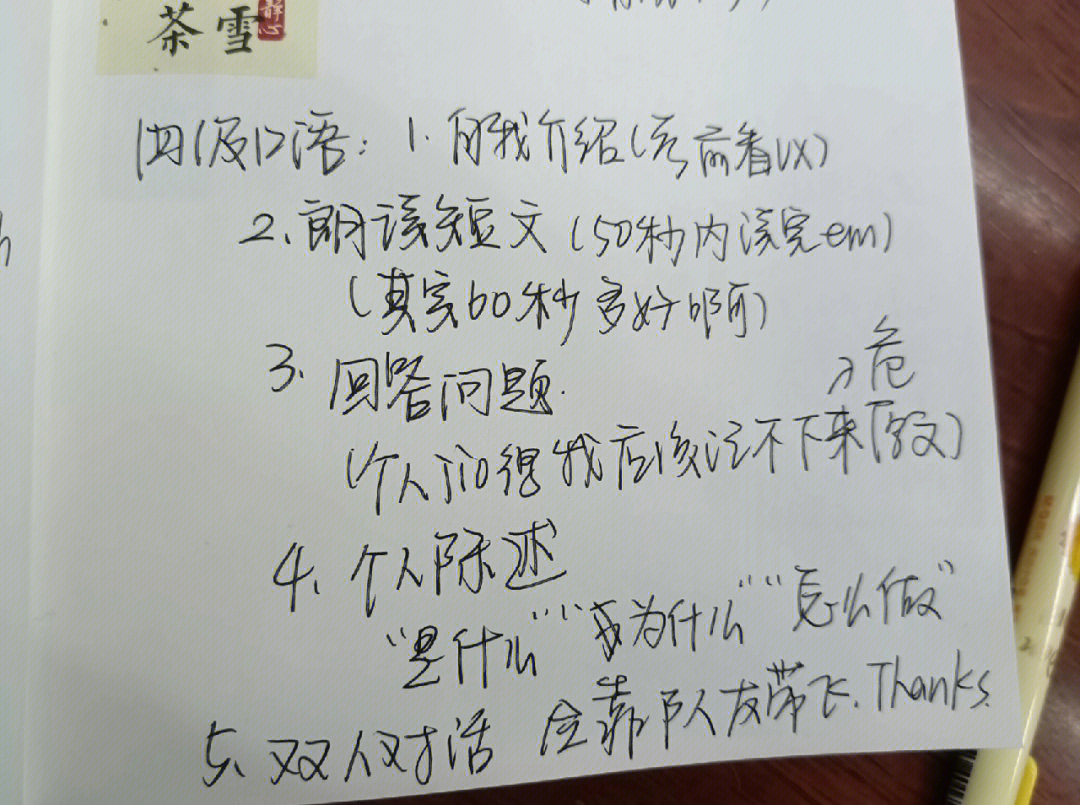 茶雪
静心
四级口语：1. 自我介绍（考前看VX）
2、朗读短文（50秒内读完em）
（其实60秒多好啊）
3. 回答问题.
危
（个人问得我应该记不下来
4、个人陈述
“是什么”“为什么”“怎么做”
5、双人对话 全靠队友带飞. Thanks.